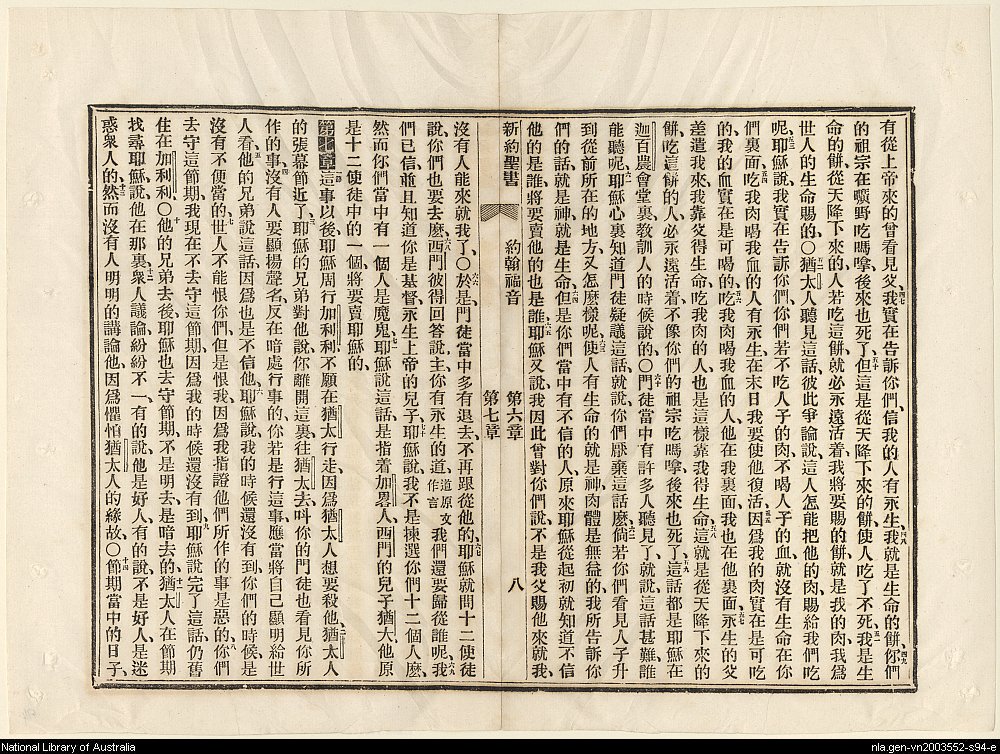 有從上帝來的曾看見父、我實在告訴你們、信我的人有永生、我就是生命的餅、你們
的祖宗在曠野吃嗎嗱、後來也死了、但這是從天降下來的餅、使人吃了不死、我是生
命的餅、從天降下來的、人若吃這餅、就必永遠活着、我將要賜的餅、就是我的肉、我爲
世人的生命賜的、〇猶太人聽見這話、彼此爭論說、這人怎能把他的肉賜給我們吃
呢、耶穌說、我實在告訴你們、你們若不吃人子的肉、不喝人子的血、就沒有生命在你
們裏面、吃我肉喝我血的人有永生、在末日我要使他復活、因爲我的肉實在是可吃
的、我的血實在是可喝的、吃我肉喝我血的人、他在我裏面、我也在他裏面、永生的父
差遣我來、我靠父得生命、吃我肉的人、也是這樣靠我得生命、這就是從天降下來的
餅、吃這餅的人必永遠活着、不像你們的祖宗吃嗎嗱、後來也死了、這話都是耶穌在
迦百農會堂裏教訓人的時候說的、〇門徒當中有許多人聽見了、就說、這話甚難、誰
能聽呢、耶穌心裏知道門徒疑議這話、就說、你們厭棄這話麽、倘若你們看見人子升
到從前所在的地方、又怎麽樣呢、使人有生命的就是神、肉體是無益的、我所告訴你
們的話、就是神、就是生命、但是你們當中有不信的人、原來耶穌從起初就知道不信
他的是誰、將要賣他的也是誰、耶穌又說、我因此曾對你們說、不是我父賜他來就我、
新約聖書 約翰福音 第六章 第七章 八
沒有人能來就我了、〇於是門徒當中多有退去、不再跟從他的、耶穌就問十二使徒
說、你們也要去麽、西門彼得回答說、主、你有永生的道、道原文作言我們還要歸從誰呢、我
們已信並且知道你是基督、永生上帝的兒子、耶穌說、我不是揀選你們十二個人麽、
然而你們當中有一個人是魔鬼、耶穌說這話、是指着加畧人、西門的兒子猶大、他原
是十二使徒中的一個、將要賣耶穌的、
第七章這事以後、耶穌周行加利利、不願在猶太行走、因爲猶太人想要殺他、猶太人
的張幕節近了、耶穌的兄弟對他說、你離開這裏、往猶太去、呌你的門徒也看見你所
作的事、沒有人要顯揚聲名、反在暗處行事的、你若是行這事、應當將自己顯明給世
人看、他的兄弟說這話、因爲也是不信他、耶穌說、我的時候還沒有到、你們的時候是
沒有不便當的、世人不能恨你們、但是恨我、因爲我指證他們所作的事是惡的、你們
去守這節期、我現在不去守這節期、因爲我的時候還沒有到、耶穌說完了這話、仍舊
住在加利利、〇他的兄弟去後、耶穌也去守節期、不是明去、是暗去的、猶太人在節期
找尋耶穌說、他在那裏、衆人議論紛紛不一、有的說、他是好人、有的說、不是好人、是迷
惑衆人的、然而沒有人明明的講論他、因爲懼怕猶太人的緣故、〇節期當中的日子、
National Library of Australia
nla.gen-vn2003552-s94-e